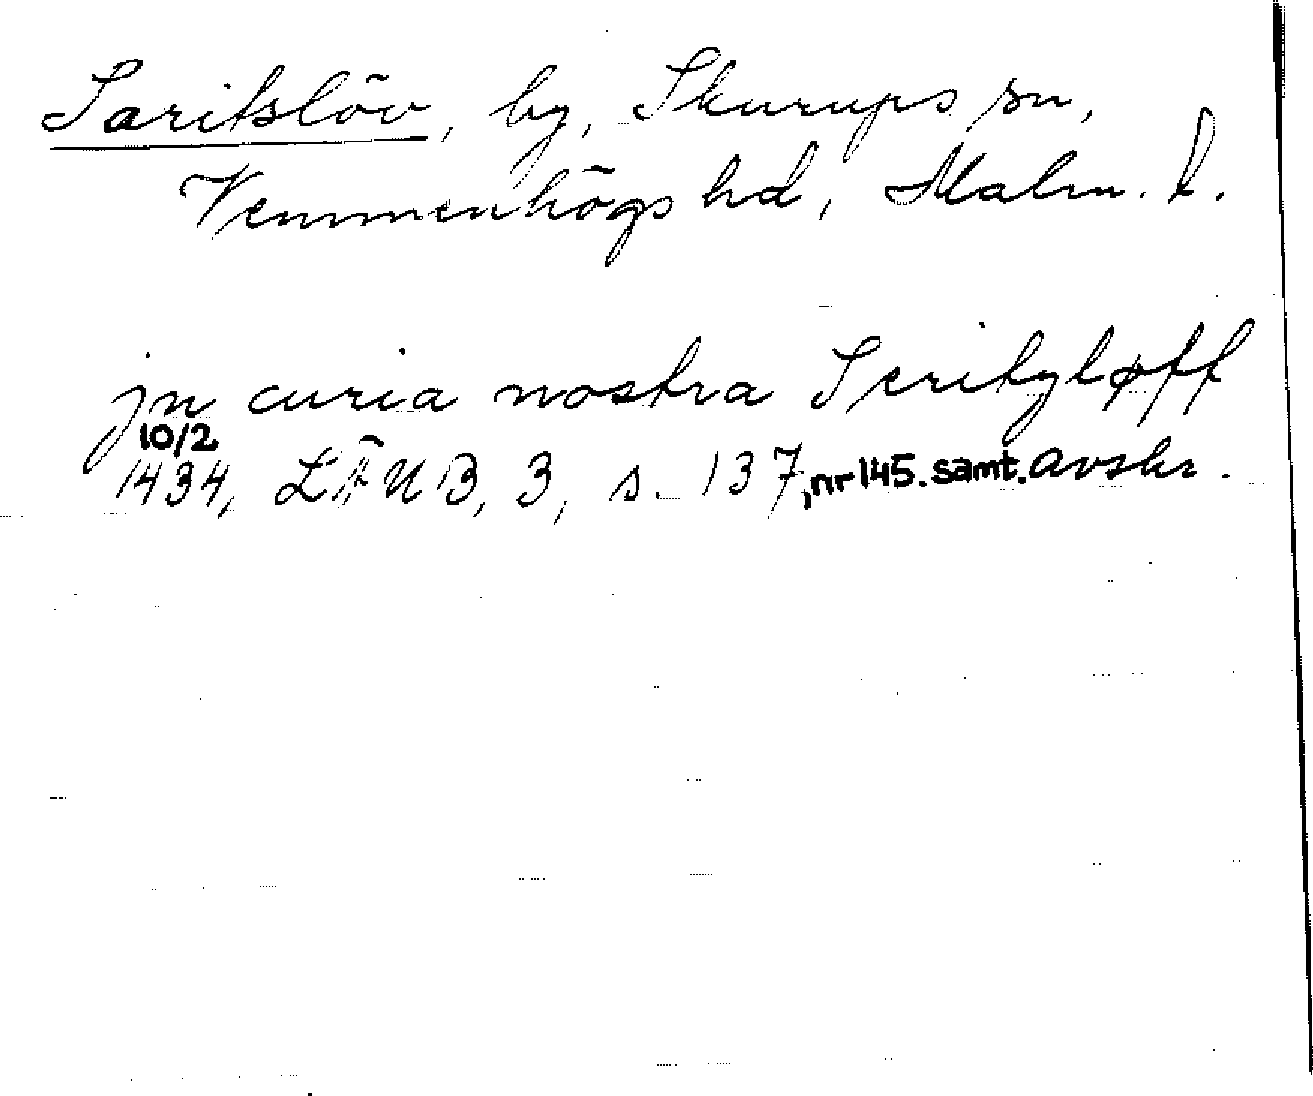 Saritslöv, by, Skurups sn,
Vemmenhögs hd, Malm. l.
jn curia nostra Seritzløff
10/2
1434, LÄUB, 3, s. 137, nr 145. samt. avskr.